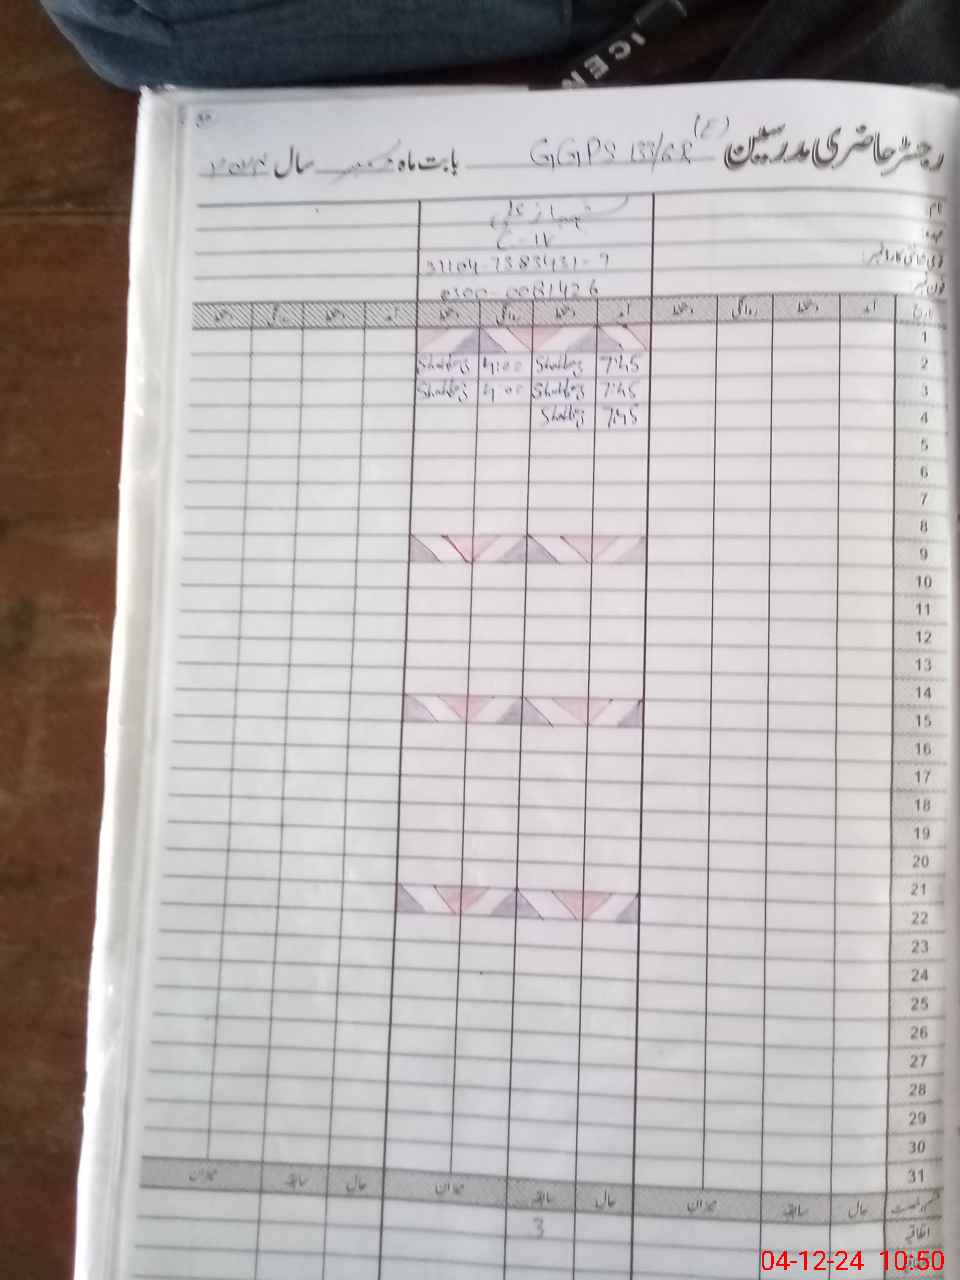 LICEN
رجسٹر حاضری مدرسین GGPS 133/6R (E) بابت ماہ دسمبر سال ۲۰۲۴
نام شہباز علی
عہدہ C-IV
قومی شناختی کارڈ نمبر 31104-7383431-9
فون نمبر 0300-0081426
تاریخ آمد دستخط روانگی دستخط آمد دستخط روانگی دستخط آمد دستخط روانگی دستخط
1
2 7:45 Shahbaz 4:00 Shahbaz
3 7:45 Shahbaz 4:00 Shahbaz
4 7:45 Shahbaz
5
6
7
8
9
10
11
12
13
14
15
16
17
18
19
20
21
22
23
24
25
26
27
28
29
30
31
حال سابقہ میزان حال سابقہ میزان حال سابقہ میزان
اتفاقیہ 3
04-12-24 10:50